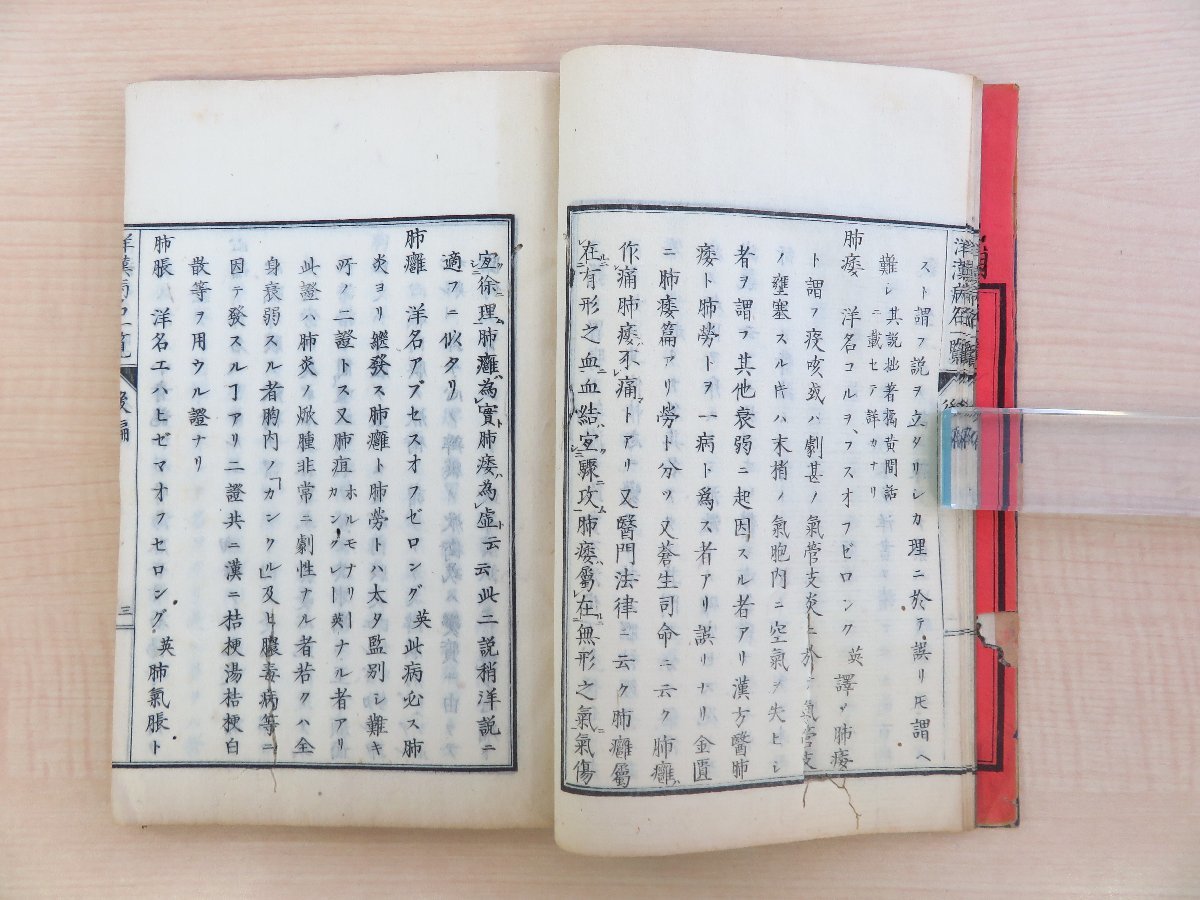 スト謂フ説ヲ立タリシカ理ニ於テ誤リ𪜈謂ヘ
難シ其説拙著橘黄間話
ニ載セテ詳カナリ
肺痿 洋名コルヲ、フスオフビロンク 英 譯シ肺痿
ト謂フ痰咳或ハ劇甚ノ氣管支炎ニ於テ氣管支
ノ壅塞スル𪜈ハ末梢ノ氣胞内ニ空氣ヲ失ヒシ
者ヲ謂フ其他衰弱ニ起因スル者アリ漢方醫肺
痿ト肺勞トヲ一病ト為ス者アリ誤リナリ金匱
ニ肺痿篇アリ勞ト分ツ又蒼生司命ニ云ク肺癰
作痛肺痿不痛トアリ又醫門法律ニ云ク肺癰屬
在有形之血血結宜驟攻肺痿屬在無形之氣氣傷
宜徐理肺癰為實肺痿為虚云云此二説稍洋説ニ
適フニ似タリ
肺癰 洋名アブセスオフゼロング 英 此病必ス肺
炎ヨリ繼發ス肺癰ト肺勞トハ太タ監別シ難キ
所ノ二證トス又肺疽 ホルモナリー カンクレー 英 ナル者アリ
此證ハ肺炎ノ焮腫非常ニ劇性ナル者若クハ全
身衰弱スル者胸内ノ「カンクル」及ヒ膿毒病等ニ
因テ發スルヿアリ二證共ニ漢ニ桔梗湯桔梗白
散等ヲ用ウル證ナリ
肺脹 洋名エハヒゼマオフセロング 英 肺氣脹ト
洋漢病名一覧
後編
三